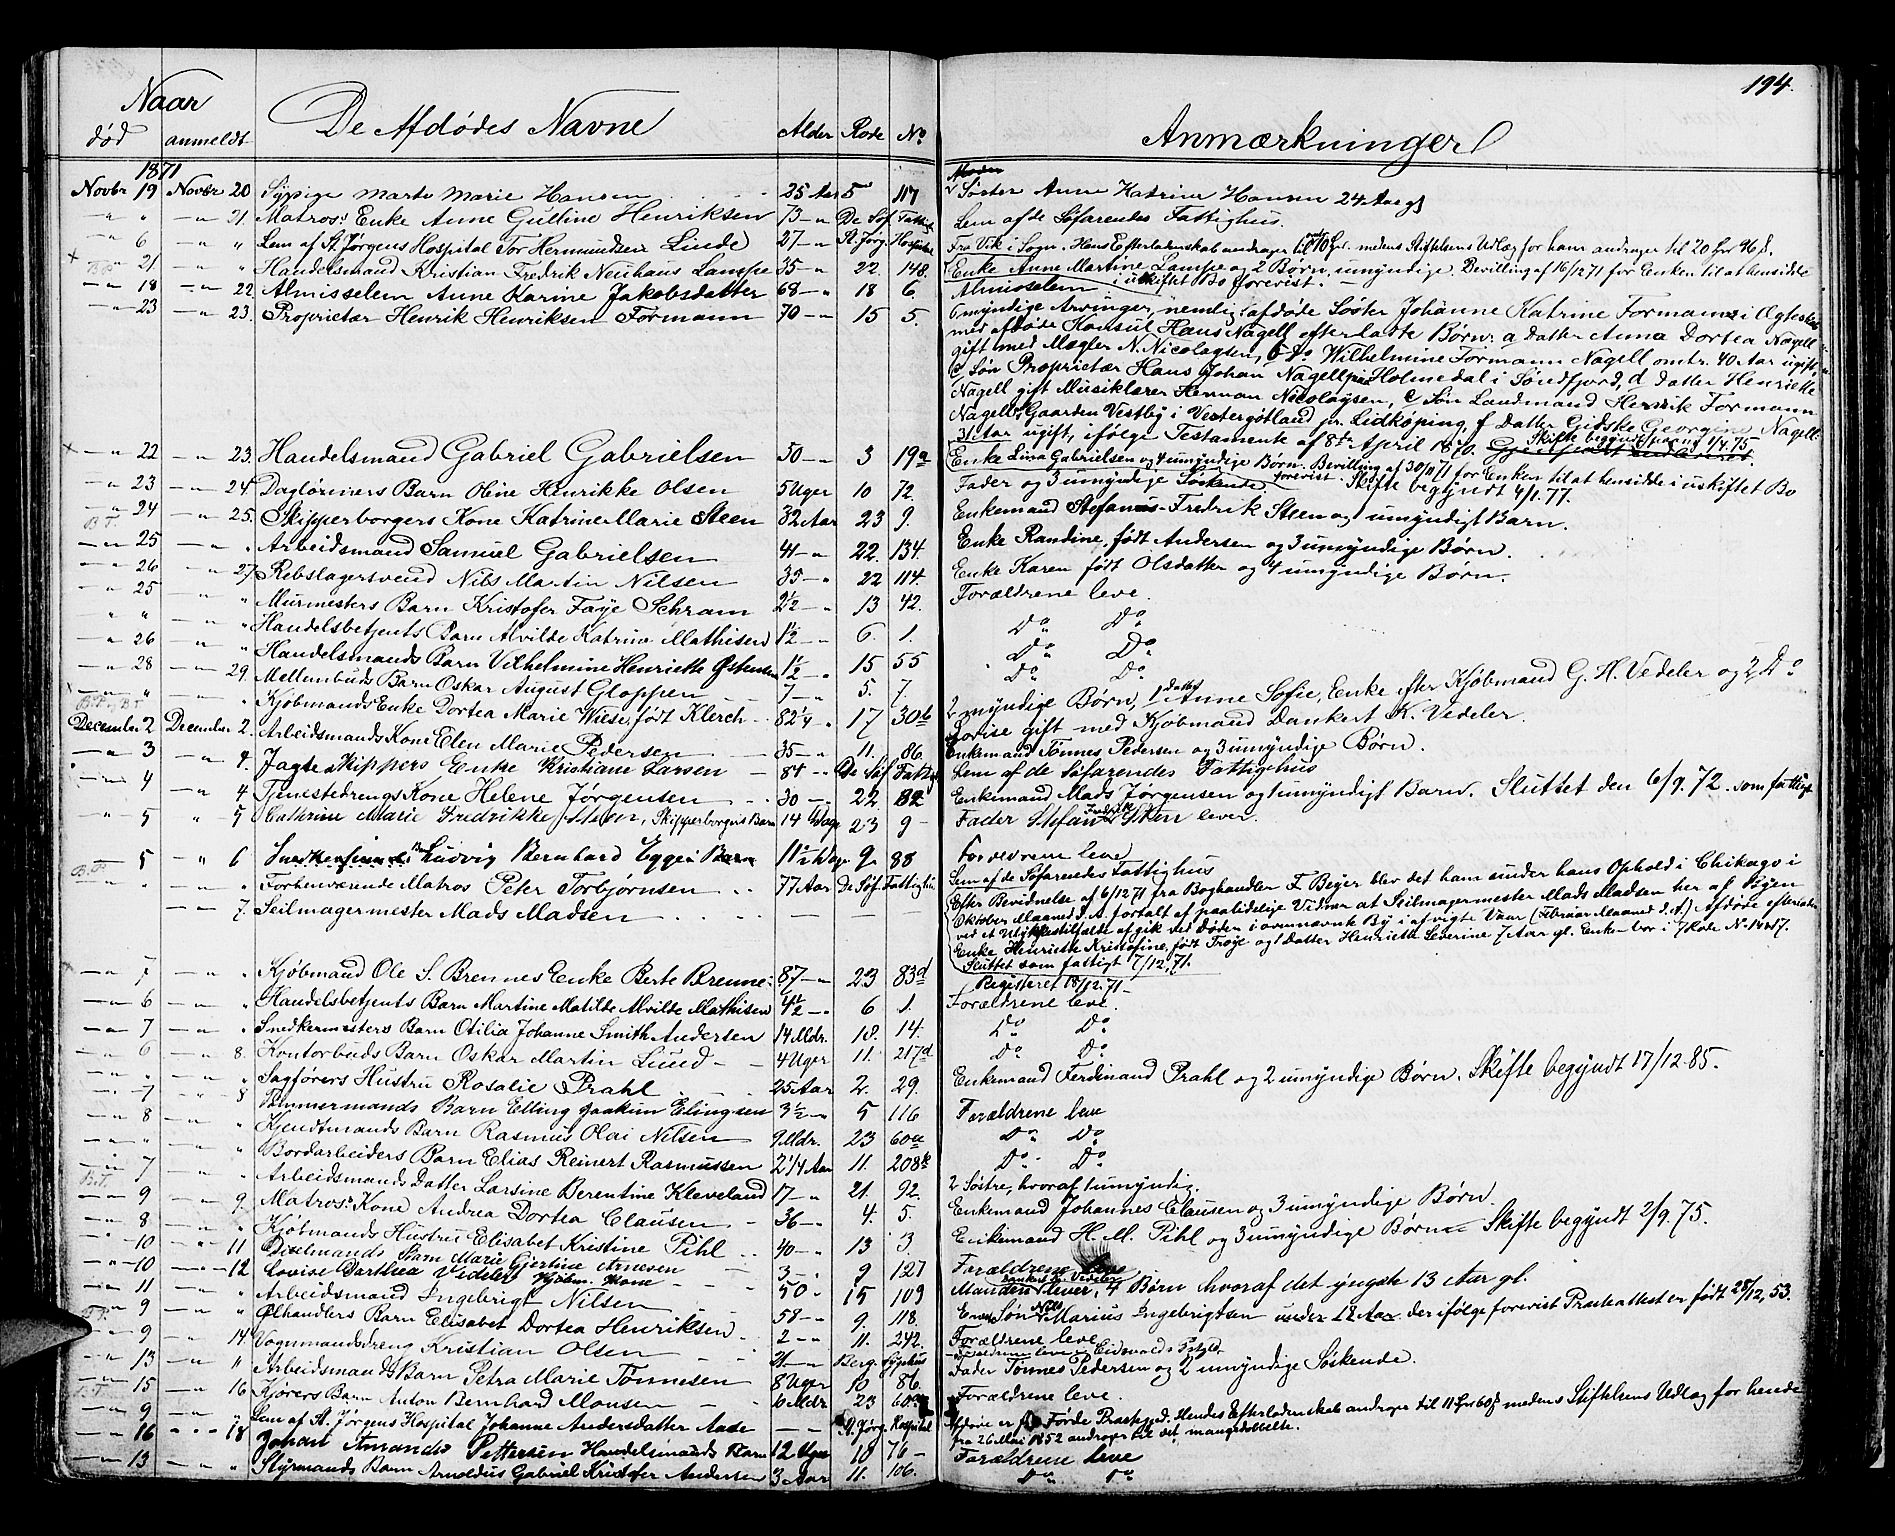 194.
Naar
død anmeldt De Afdødes Navne Alder Rode No Anmærkninger
1871
Novbr 19 Novbr 20 Sypige Marte Marie Hansen 25 Aar 5 117 Søster Anne Katrine Hansen 24 Aar gl
" 21. Matros: Enke Anne Guline Henriksen 73 De Søf. Fattigh. Lem af de Søfarendes Fattighus.
6 " Lem af St. Jørgens Hospital Tor Hermundsen Linde 27 St. Jørg. Hospital Fra Vik i Sogn. Hans Efterladenskab andrager til medens Stiftelsens Udlæg for ham andrager til 20 46 ß.
21 " Handelsmand Kristian Fredrik Neuhaus Lampe 35 22 148. Enke Anne Martine Lampe og 2 Børn, umyndige. Bevilling af 16/12 71 for Enken til at hensidde
i uskiftet Bo forevist.
18 22. Almisselem Anne Karine Jakobsdatter 68 18 6. Almisselem
23 23. Proprietær Henrik Henriksen Formann 70 15 5. 6 myndige Arvinger, nemlig afdøde Søster Johanne Katrine Formanns i Ægteskab
med afdøde Konsul Hans Nagell efterladte Børn: a Datter Anna Dortea Nagell
gift med Mægler N. Nicolaysen, b Do Wilhelmine Formann Nagell omtr. 40 Aar ugift,
c Søn Proprietær Hans Johan Nagell paa Holmedal i Søndfjord, d Datter Henriette
Nagell gift Musiklærer Herman Nicolaysen, e Søn Landmand Henrik Formann
Nagell, Gaarden Vestby i Vestergøtland pr. Lidkøping, f Datter Gidske Georgine Nagell
31 Aar ugift, ifølge Testamente af 8de April 1870. Skifte begyndt 1/7 75
22 23. Handelsmand Gabriel Gabrielsen 50 3 19a Enke Lina Gabrielsen og 4 umyndige Børn. Bevilling af 30/11 71 for Enken til at hensidde i uskiftet Bo
forevist. Skifte begyndt 4/1. 77.
23 24. Dagløniers Barn Oline Henrikke Olsen 5 Uger 10 72. Fader og 3 umyndige Søskende.
24 25. Skipperborgers Kone Katrine Marie Steen 32 Aar 23 9. Enkemand Stefanus Fredrik Steen og 1 umyndigt Barn.
25 " Arbeidsmand Samuel Gabrielsen 41 22. 134. Enke Randine, født Andersen og 3 umyndige Børn.
26 27. Rebslagersvend Nils Martin Nilsen 35 22 114. Enke Karen født Olsdatter og 4 umyndige Børn.
25 " Murmesters Barn Kristofer Faye Schram 2½ 13 42. Forældrene leve.
" " Handelsbetjents Barn Alvilde Katrine Mathisen 1½ 6. 1. Do Do
26 " Handelsmands Barn Vilhelmine Henriette Østensen 1½ 15 55 Do Do
28 29. Mellembuds Barn Oskar August Gloppen 7 5. 7. Do Do
" " Kjøbmands Enke Dortea Marie Wiese, født Klerch 82¼ 17 30b 2 myndige Børn, 1 Datter Anne Sofie, Enke efter Kjøbmand G. H. Vedeler og 2, Do
Lovise gift med Kjøbmand Dankert K. Vedeler.
December 2 December 2. Arbeidsmands Kone Elen Marie Pedersen 35 11. 86. Enkemand Tønnes Pedersen og 3 umyndige Børn.
3 4. Jagteskippers Enke Kristiane Larsen 84 De Søf. Fattigh Lem af de Søfarendes Fattighus
4 4 Tjenestedrengs Kone Helene Jørgensen 30 22 82 Enkemand Mads Jørgensen og 1 umyndigt Barn. Sluttet den 6/9. 72. som fattigt
5 " 5 Cathrine Marie Fredrikke Steen, Skipperborgers Barn 14 Dage 23 9 Fader Stefan Fredrik Steen lever.
5 " 6 Ludvig Bernhard Egge Barn 11½ Dage 9. 88 Forældrene leve
" " Forhenværende Matros Peter Torbjørnsen 77 Aar De Søf. Fattighus Lem af de Søfarendes Fattighus
7. Seilmagermester Mads Madsen Efter Bevidnelse af 6/12 71 fra Boghandler F. Beyer blev det ham under hans Ophold i Chikago i
Oktober Maaned d. A. fortalt af paalidelige Vidner at Seilmagermester Mads Madsen her af Byen
ved et Ulykkestilfælde afgik ved Døden i ovennævnte By i afvigte Vaar (Februar Maaned d. A.) Afdøde efterlader
Enke Henriette Kristofine, født Troye og 1 Datter Henriette Severine 7 Aar gl. Enken bor i 7 Rode No 14 od 7.
Sluttet som fattigt 7/12. 71.
7 " Kjøbmand Ole S. Brennes Enke Berte Brenne 87 23 83d Registeret 18/12. 71.
6 " Handelsbetjents Barn Martine Matilde Alvilde Mathisen 4½ 6 1. Forældrene leve.
7 " Snedkermesters Barn Otilia Johanne Smith Andersen 14 Mdr. 10. 14. Do Do
6 8. Kontorbuds Barn Oskar Martin Lund 4 Uger 11. 217d Do Do
" " Sagførers Hustru Rosalie Prahl 25 Aar 2. 29. Enkemand Ferdinand Prahl og 2 umyndige Børn. Skifte begyndt 17/12. 85.
7 8 Tømmermands Barn Elling Joakim Elingsen 3½ 5 116 Forældrene leve
8 " Kjendtmands Barn Rasmus Olai Nilsen 9 Mdr. 23 60a Do Do
" " Bordarbeiders Barn Elias Reinert Rasmussen 2¼ Aar 11. 208k Do Do
7 " Arbeidsmands Datter Larsine Berentine Kleveland 17 21. 92. 2 Søstre, hvoraf 1 umyndig.
9 9. Matros: Kone Andrea Dortea Clausen 36 4. 5. Enkemand Johannes Clausen og 3 umyndige Børn.
8 " Kjøbmands Hustru Elisabet Kristine Pihl 40 13 3. Enkemand H. M. Pihl og 3 umyndige Børn. Skifte begyndt 2/9. 75.
10 11 Barn Marie Gjertine Arnesen 3 9 127 Forældrene leve
10 12 Lovise Dorthea Vedeler Kjøbm. Kone 50 15 109 Manden Dankert K. Vedeler lever, 4 Børn hvoraf det yngste 13 Aar gl.
11 " Arbeidsmand Ingebrigt Nilsen 58 9. 118. En Søn Nils Marius Ingebrigtsen under 18 Aar der ifølge forevist Præsteattest er født 28/12, 53.
9 " Ølhandlers Barn Elisabet Dortea Henriksen 2 11. 242. Forældrene leve
9 14. Vognmandsdreng Kristian Olsen 21 Berg. Sygehus Forældrene leve i Eidsvolds Pgld.
13 " Arbeidsmands Barn Petra Marie Tønnesen 8 Uger 10 86. Fader Tønnes Pedersen og 2 umyndige Søskende.
15 16 Kjørers Barn Anton Bernhard Monsen 6 Mdr 23 60aa Forældrene leve.
9 " Lem af St. Jørgens Hospital Johanne Andersdatter Aase St. Jørg. Hospital Afdøde er fra Førde Præstegjd. Hendes Efterladenskab andrager til 11 60 ß medens Stiftelsens Udlæg for hende
fra 26 Mai 1852 andrager til det mangedobbelte.
16 18 Johan Amandus Pettersen Handelsmands Barn 12 Uger 10 76 Forældrene leve
13 " Styrmands Barn Arnoldus Gabriel Kristofer Andersen 3 Aar 11. 106. Do Do